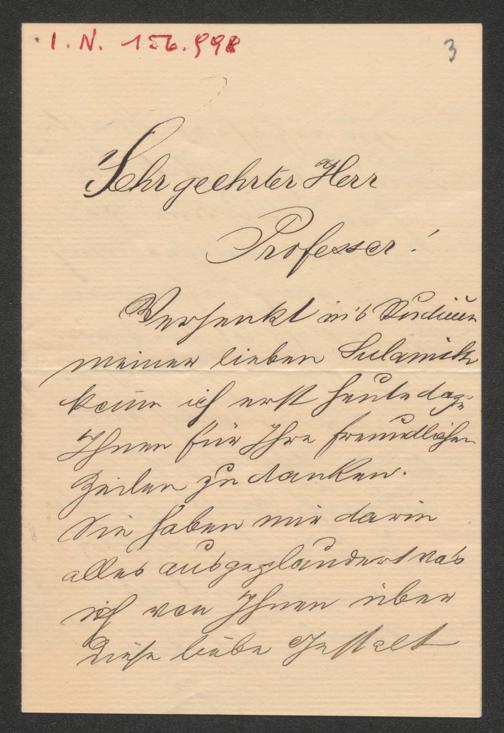 I. N. 156.998
3
Sehr geehrter Herr
Professor!
Versenkt in's Studium
meiner lieben Sulamith
komm ich erst heute dazu
Ihnen für Ihre freundlichen
Zeilen zu danken.
Sie haben mir darin
alles ausgeplaudert was
ich von Ihnen über
diese liebe Gestalt